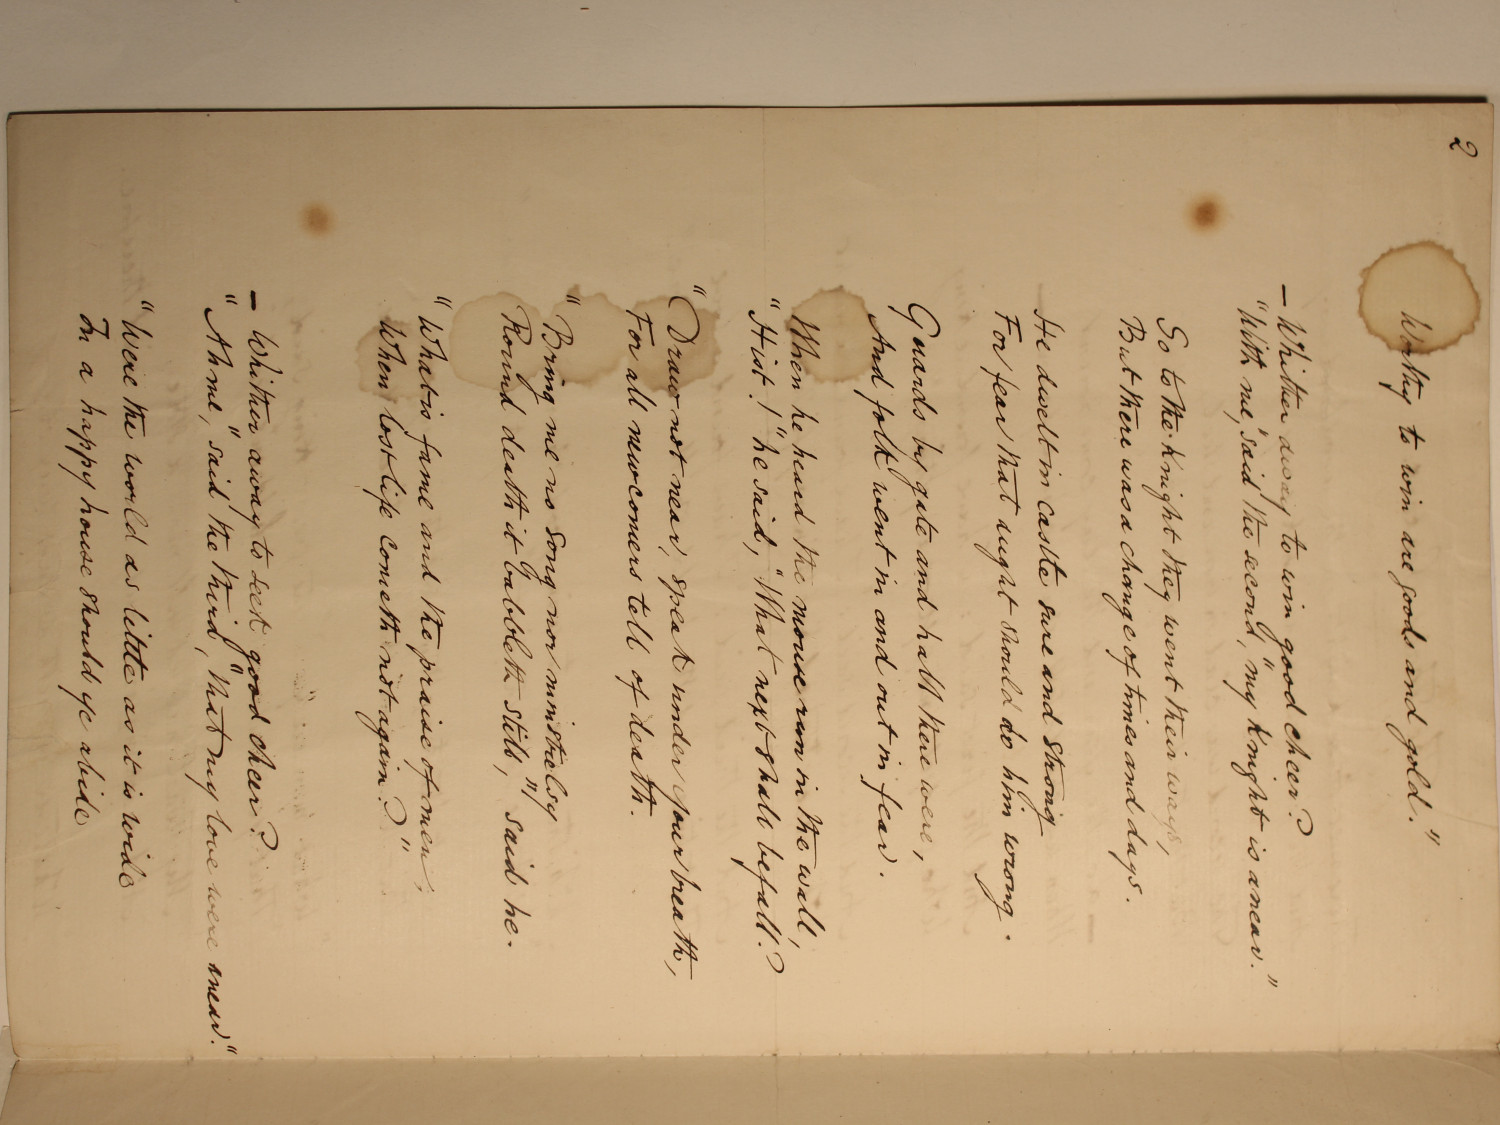 2
Worthy to win are goods and gold."
— Whither away to win good cheer?
"With me," said the second, "my knight is anear."
Go to the knight they went their ways,
But there was a change of times and days.
He dwelt in castle sure and strong
For fear that aught should do him wrong.
Guards by gate and hall there were,
And folk went in and out in fear.
When he heard the mouse run in the wall,
"Hist!" he said, "What next shall befall?
"Draw not near, speak under your breath,
For all newcomers tell of death.
"Bring me no song nor minstrelsy
Round death it babbleth still," said he.
"What is fame and the praise of men,
When lost life cometh not again?"
— Whither away to seek good cheer?
"Ah me," said the third, "that my love were anear."
"Were the world as little as it is wide
In a happy house should ye abide